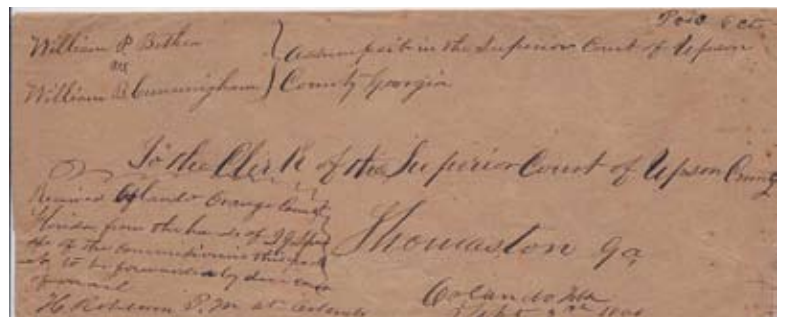 Paid 6 cts
William P. Bethea
vs
William B Cunningham
Assumpsit in the Superior Court of Upson
County Georgia
To the Clerk of the Superior Court of Upson County
Thomaston Ga
Received Orlando Orange County
Florida from the hands of
of the commissioners this
to be forwarded by due course
of mail
H Robinson P.M. at Orlando
Orlando Fla